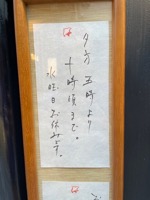 夕方 五時より
十時頃まで。
水曜日お休みです。